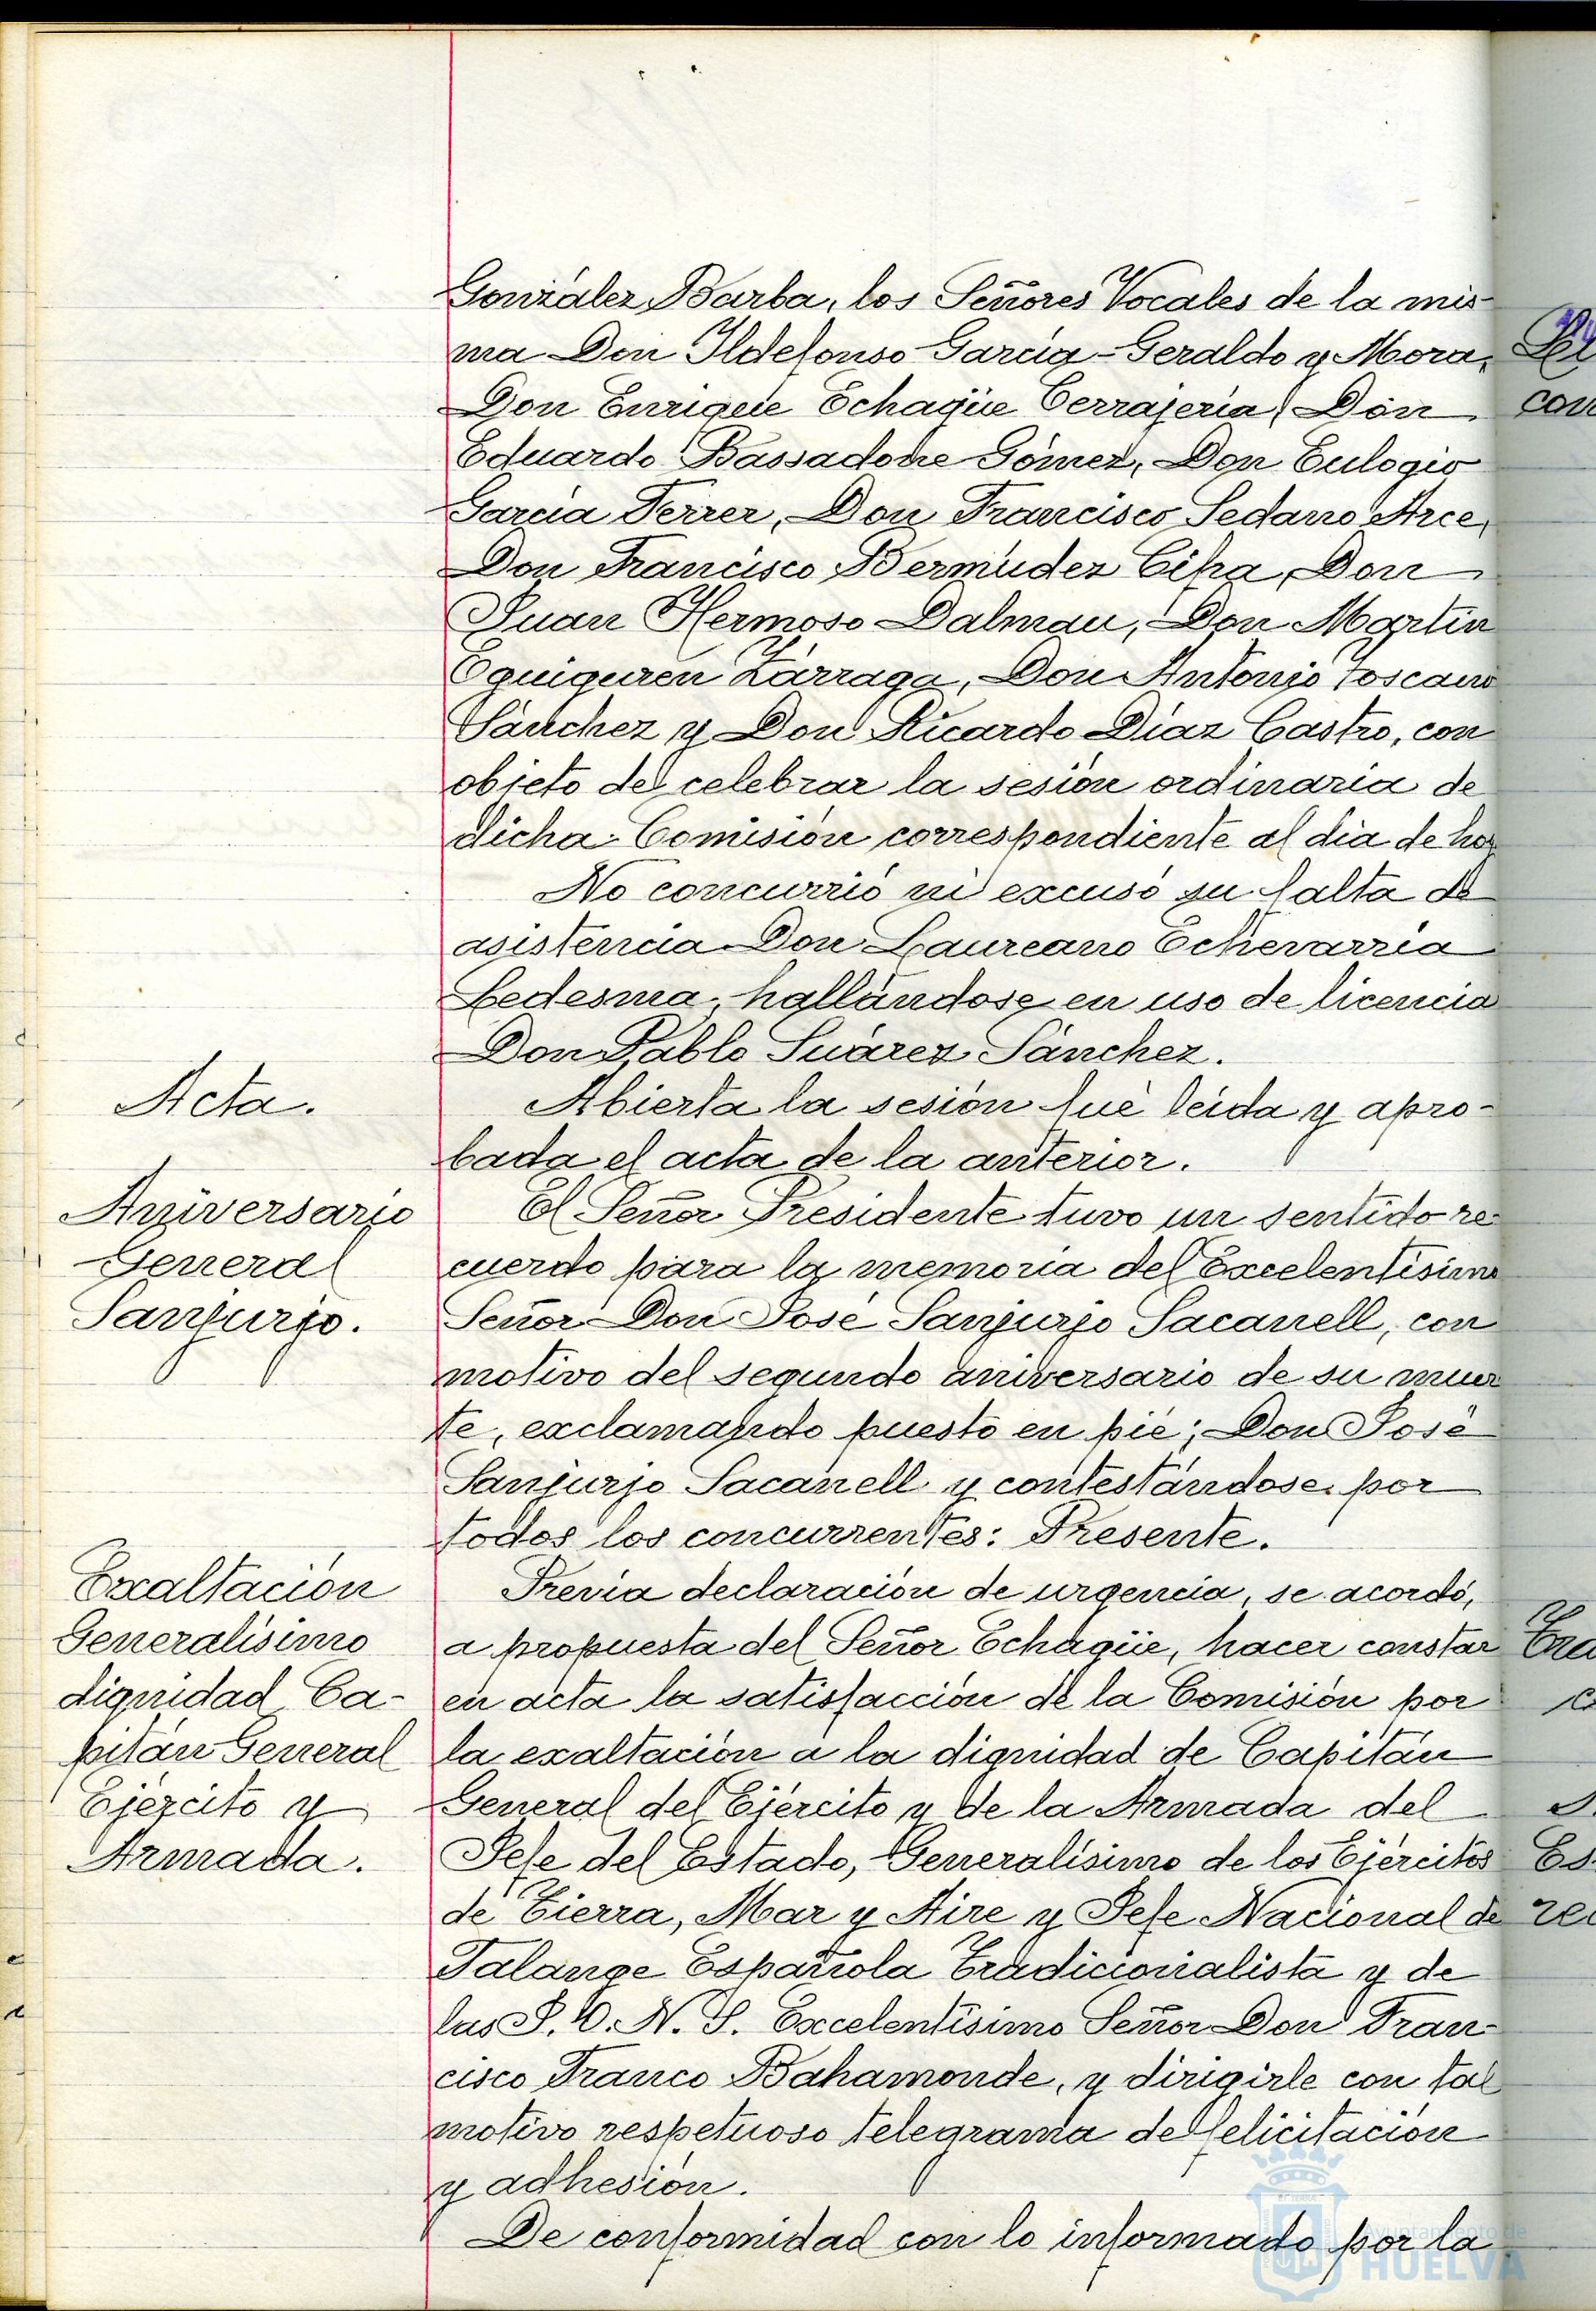 González Barba, los Señores Vocales de la mis-
ma Don Ildefonso García-Geraldo y Mora,
Don Enrique Echagüe Cerrajería, Don
Eduardo Bassadone Gómez, Don Eulogio
García Ferrer, Don Francisco Sedano Arce,
Don Francisco Bermúdez Cifra, Don
Juan Hermoso Dalmau, Don Martín
Eguiguren Zárraga, Don Antonio Toscano
Sánchez y Don Ricardo Díaz Castro, con
objeto de celebrar la sesión ordinaria de
dicha Comisión correspondiente al día de hoy
No concurrió ni excusó su falta de
asistencia Don Laureano Echevarría
Ledesma, hallándose en uso de licencia
Don Pablo Suárez Sánchez.
Acta.
Abierta la sesión fué leída y apro-
bada el acta de la anterior.
Aniversario
General
Sanjurjo.
El Señor Presidente tuvo un sentido re-
cuerdo para la memoria del Excelentísimo
Señor Don José Sanjurjo Sacanell, con
motivo del segundo aniversario de su muer
te, exclamando puesto en pié; Don José
Sanjurjo Sacanell y contestándose por
todos los concurrentes: Presente.
Exaltación
Generalísimo
dignidad Ca-
pitán General
Ejército y
Armada.
Previa declaración de urgencia, se acordó,
a propuesta del Señor Echagüe, hacer constar
en acta la satisfacción de la Comisión por
la exaltación a la dignidad de Capitán
General del Ejército y de la Armada del
Jefe del Estado, Generalísimo de los Ejércitos
de Tierra, Mar y Aire y Jefe Nacional de
Falange Española Tradicionalista y de
las J.O.N.S. Excelentísimo Señor Don Fran-
cisco Franco Bahamonde, y dirigirle con tal
motivo respetuoso telegrama de felicitación
y adhesión.
De conformidad con lo informado por la
Ayuntamiento de
HUELVA